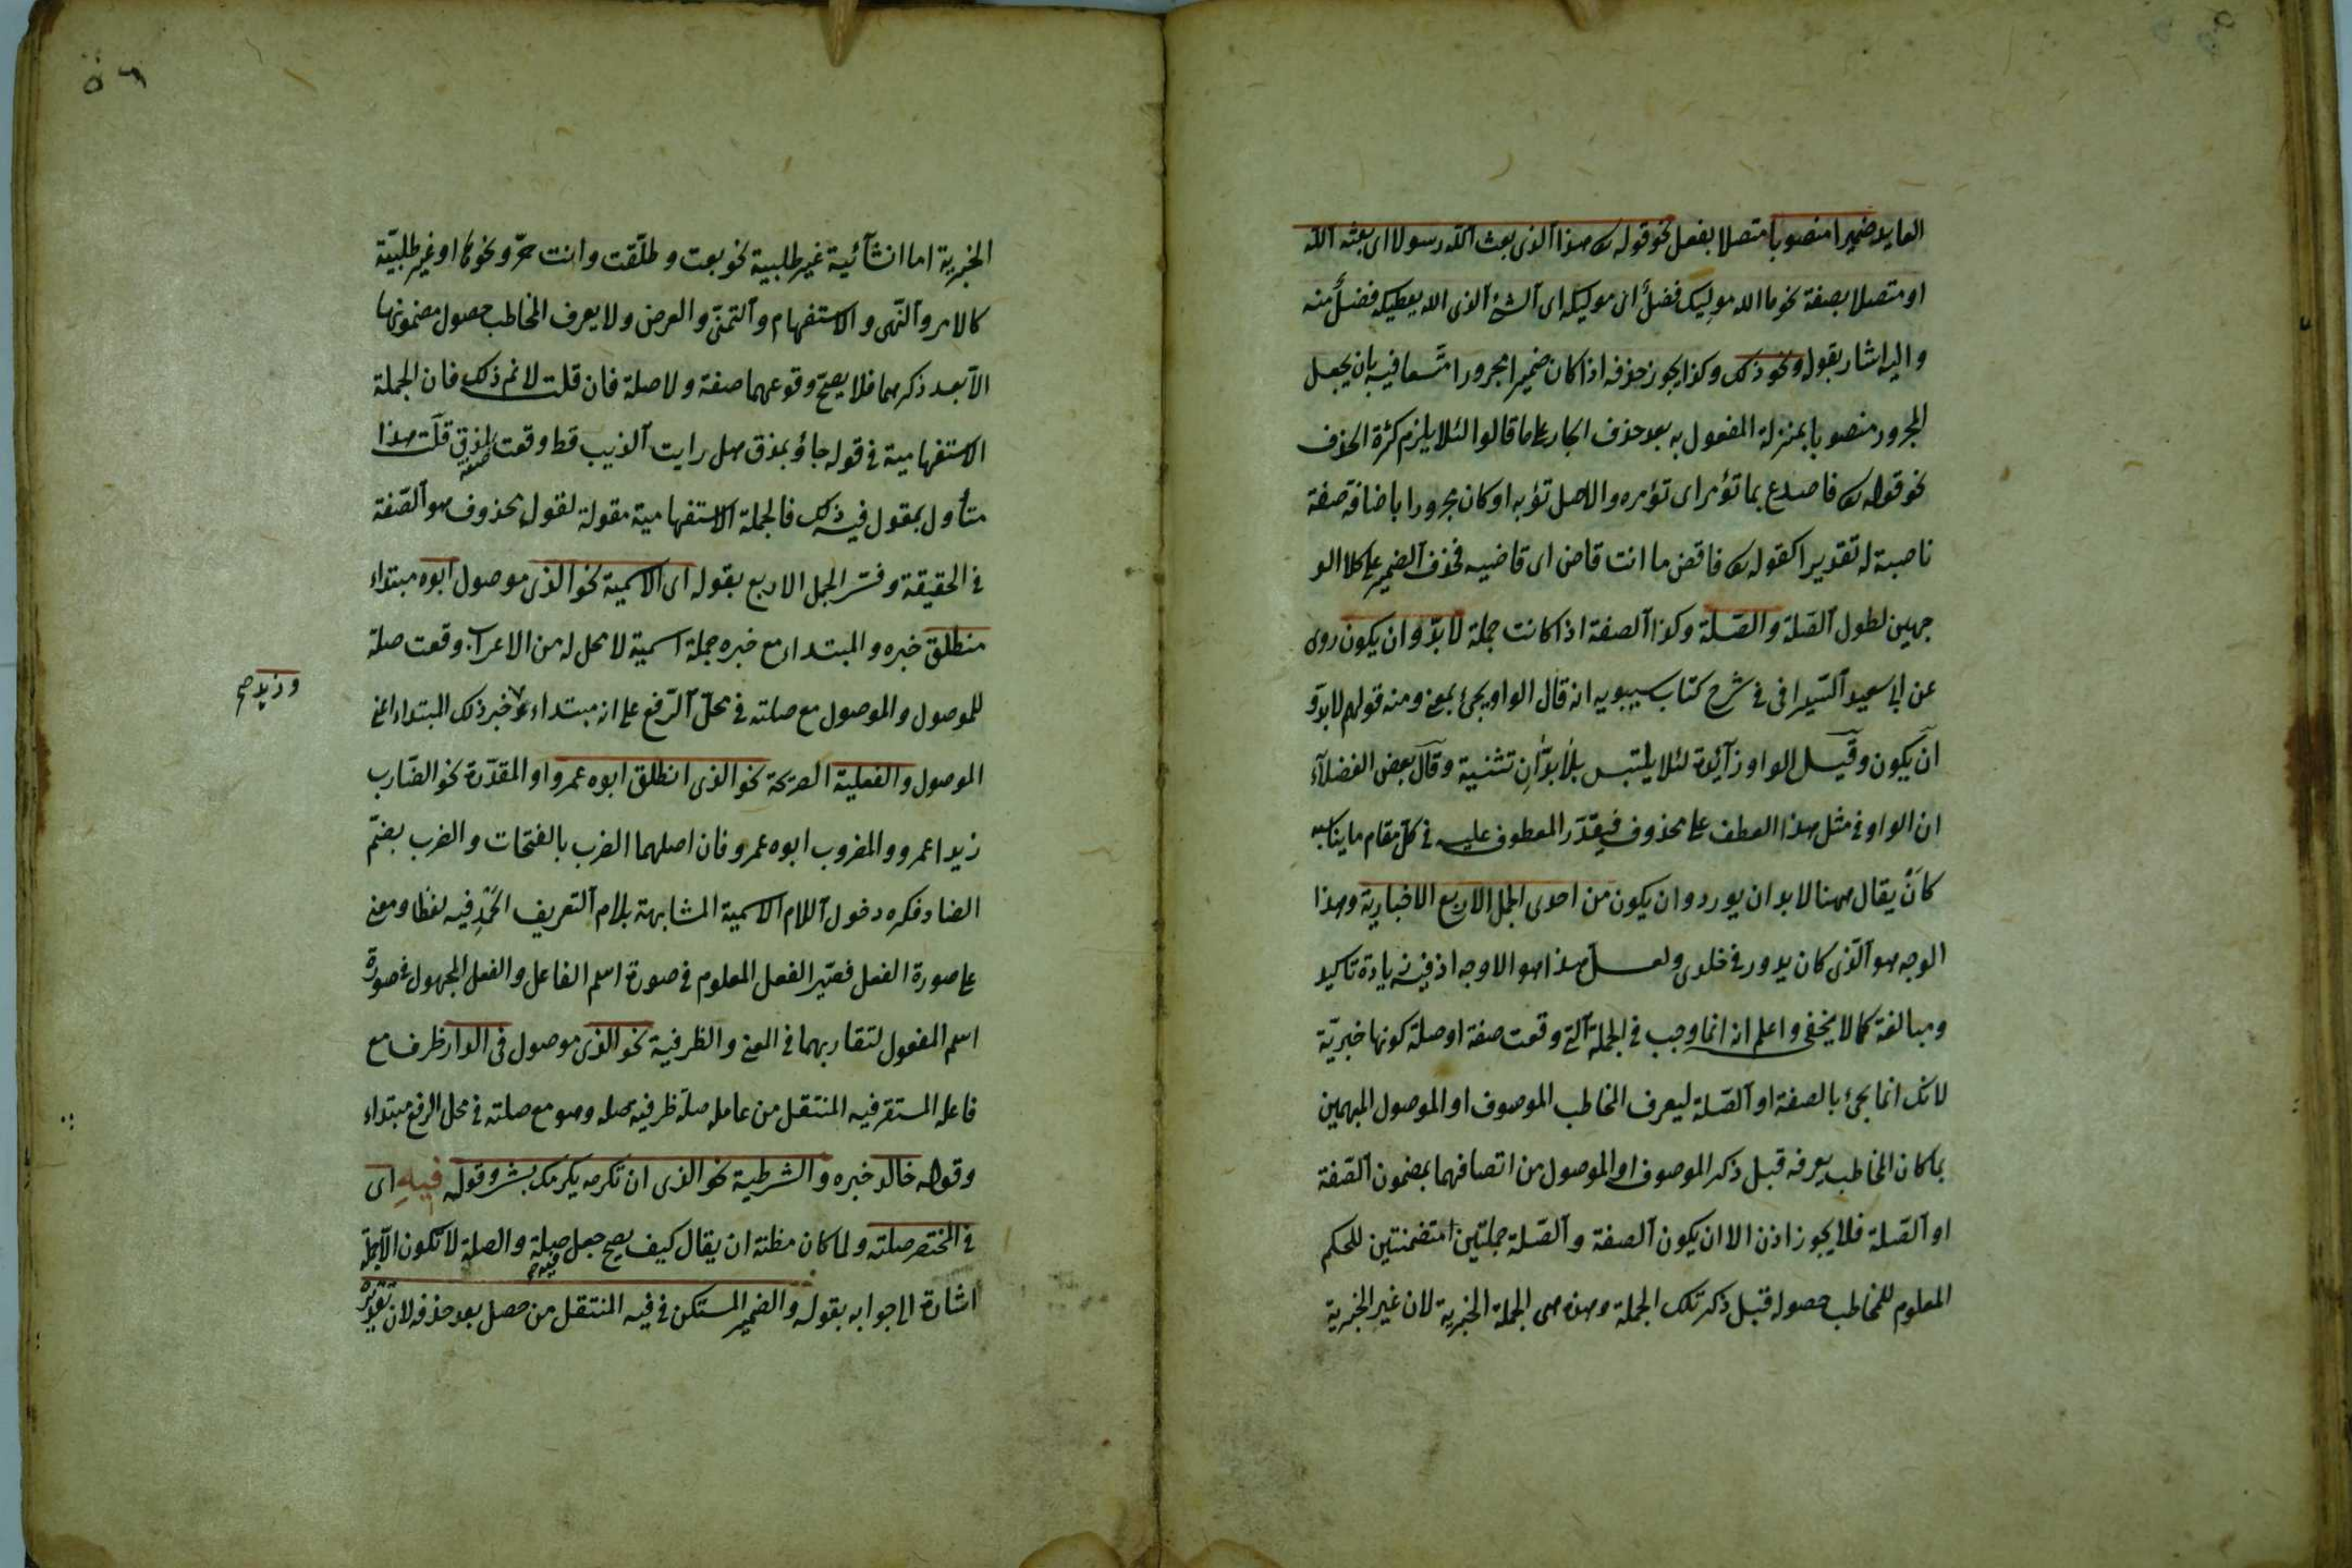 العايد ضميرا منصوبا متصلا بفعل نحو قوله تع هذا الذى بعث الله رسولا اى بعثه الله
او متصلا بصفة نحو ما الله موليك فضل اى موليكه اى الشئ الذى الله يعطيكه فضل منه
واليه اشار بقوله ونحو ذلك وكذا يجوز حذفه اذا كان ضميرا مجرورا متسعا فيه بان يجعل
المجرور منصوبا بمنزلة المفعول به بعد حذف الجار على ما قالوا لئلا يلزم كثرة الحذف
نحو قوله تع فاصدع بما تؤمر اى تؤمره والاصل تؤبه او كان مجرورا باضافة صفة
ناصبة له تقديرا كقوله تع فاقض ما انت قاض اى قاضيه فحذف الضمير على كلا الو
جهين لطول الصلة والصلة وكذا الصفة اذا كانت جملة لا بد وان يكون روى
عن ابى سعيد السيرافى فى شرح كتاب سيبويه انه قال الواو يجئ بمعنى ومنه قولهم لا بد و
ان يكون وقيل الواو زائدة لئلا يلتبس بلا بدان تثنية وقال بعض الفضلاء
ان الواو فى مثل هذا العطف على محذوف فيقدر المعطوف عليه فى كل مقام ما يناسبه
كان يقال ههنا لا بد ان يورد وان يكون من احدى الجمل الاربع الاخبارية وهذا
الوجه هو الذى كان يدور فى خلدى ولعل هذا هو الاوجه اذ فيه زيادة تاكيد
ومبالغة كما لا يخفى واعلم انه انما وجب فى الجملة التى وقعت صفة او صلة كونها خبرية
لانك انما تجئ بالصفة او الصلة ليعرف المخاطب الموصوف او الموصول المبهمين
بما كان المخاطب يعرفه قبل ذكر الموصوف او الموصول من اتصافهما بمضمون الصفة
او الصلة فلا يجوز اذن الا ان يكون الصفة والصلة جملتين متضمنتين للحكم
المعلوم للمخاطب حصوله قبل ذكر تلك الجملة وهذه هى الجملة الخبرية لان غير الخبرية
٥٦
الخبرية اما انشائية غير طلبية نحو بعت وطلقت وانت حر ونحوها او غير طلبية
كالامر والنهى والاستفهام والتمنى والعرض ولا يعرف المخاطب حصول مضمونها
الا بعد ذكرهما فلا يصح وقوعهما صفة ولا صلة فان قلت لا نم ذلك فان الجملة
الاستفهامية فى قوله جاؤ بمذق هل رايت الذيب قط وقعت صفة لمذق قلت هذا
متأول بمقول فيه ذلك فالجملة الاستفهامية مقولة لقول محذوف هو الصفة
فى الحقيقة وفسر الجمل الاربع بقوله اى الاسمية نحو الذى موصول ابوه مبتداء
منطلق خبره والمبتدا مع خبره جملة اسمية لا محل له من الاعراب وقعت صلة
للموصول والموصول مع صلته فى محل الرفع على انه مبتداء خبر ذلك المبتداء اعنى
وزيد صح
الموصول والفعلية الصريحة نحو الذى انطلق ابوه عمرو او المقدرة نحو الضارب
زيدا عمرو والمضروب ابوه عمرو فان اصلهما الضرب بالفتحات والضرب بضم
الضاد فكره دخول اللام الاسمية المشابهة بلام التعريف الحرفيه لفظا ومعنى
على صورة الفعل فصير الفعل المعلوم فى صورة اسم الفاعل والفعل المجهول فى صورة
اسم المفعول لتقاربهما فى المعنى والظرفية نحو الذى موصول فى الدار ظرف مع
فاعله المستقر فيه المنتقل من عامله صلة ظرفية صله وهو مع صلته فى محل الرفع مبتداء
وقوله خالد خبره والشرطية نحو الذى ان تكرمه يكرمك بشر وقوله فيه اى
فى المختصر صلته ولما كان مظنة ان يقال كيف يصح جعل فيه صلة والصلة لا تكون الا جملة
اشارة الى جوابه بقوله والضمير المستكن فى فيه المنتقل من حصل بعد حذفه لان تقديره